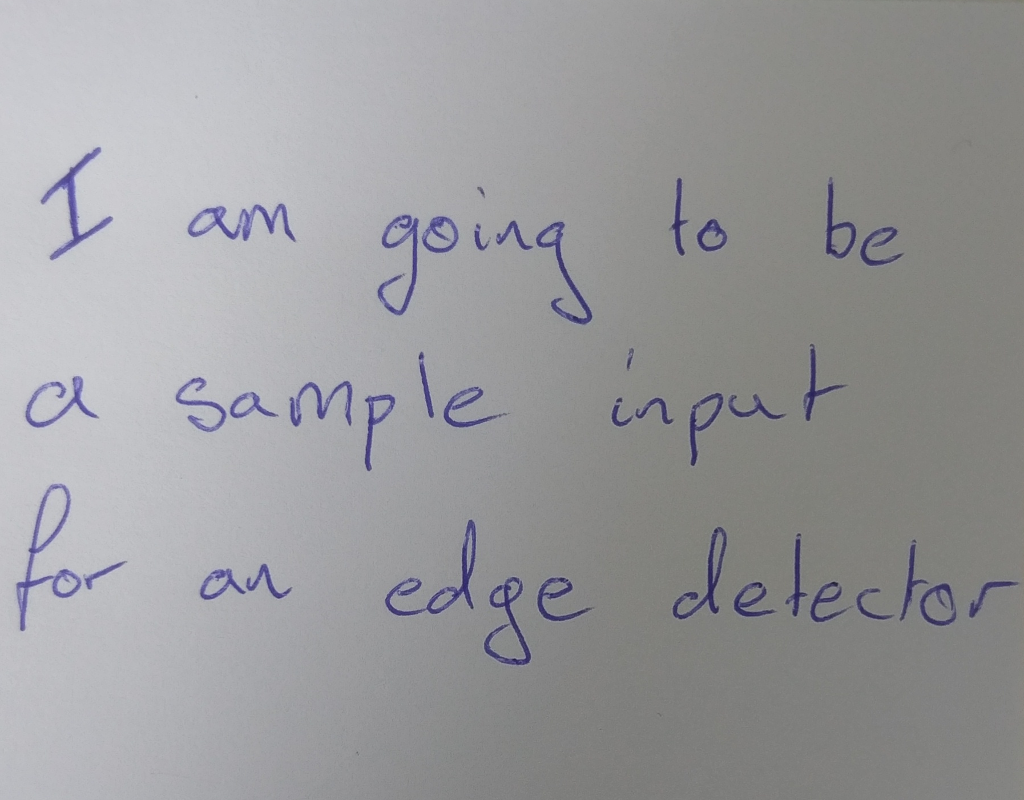 I am going to be
a sample input
for an edge detector